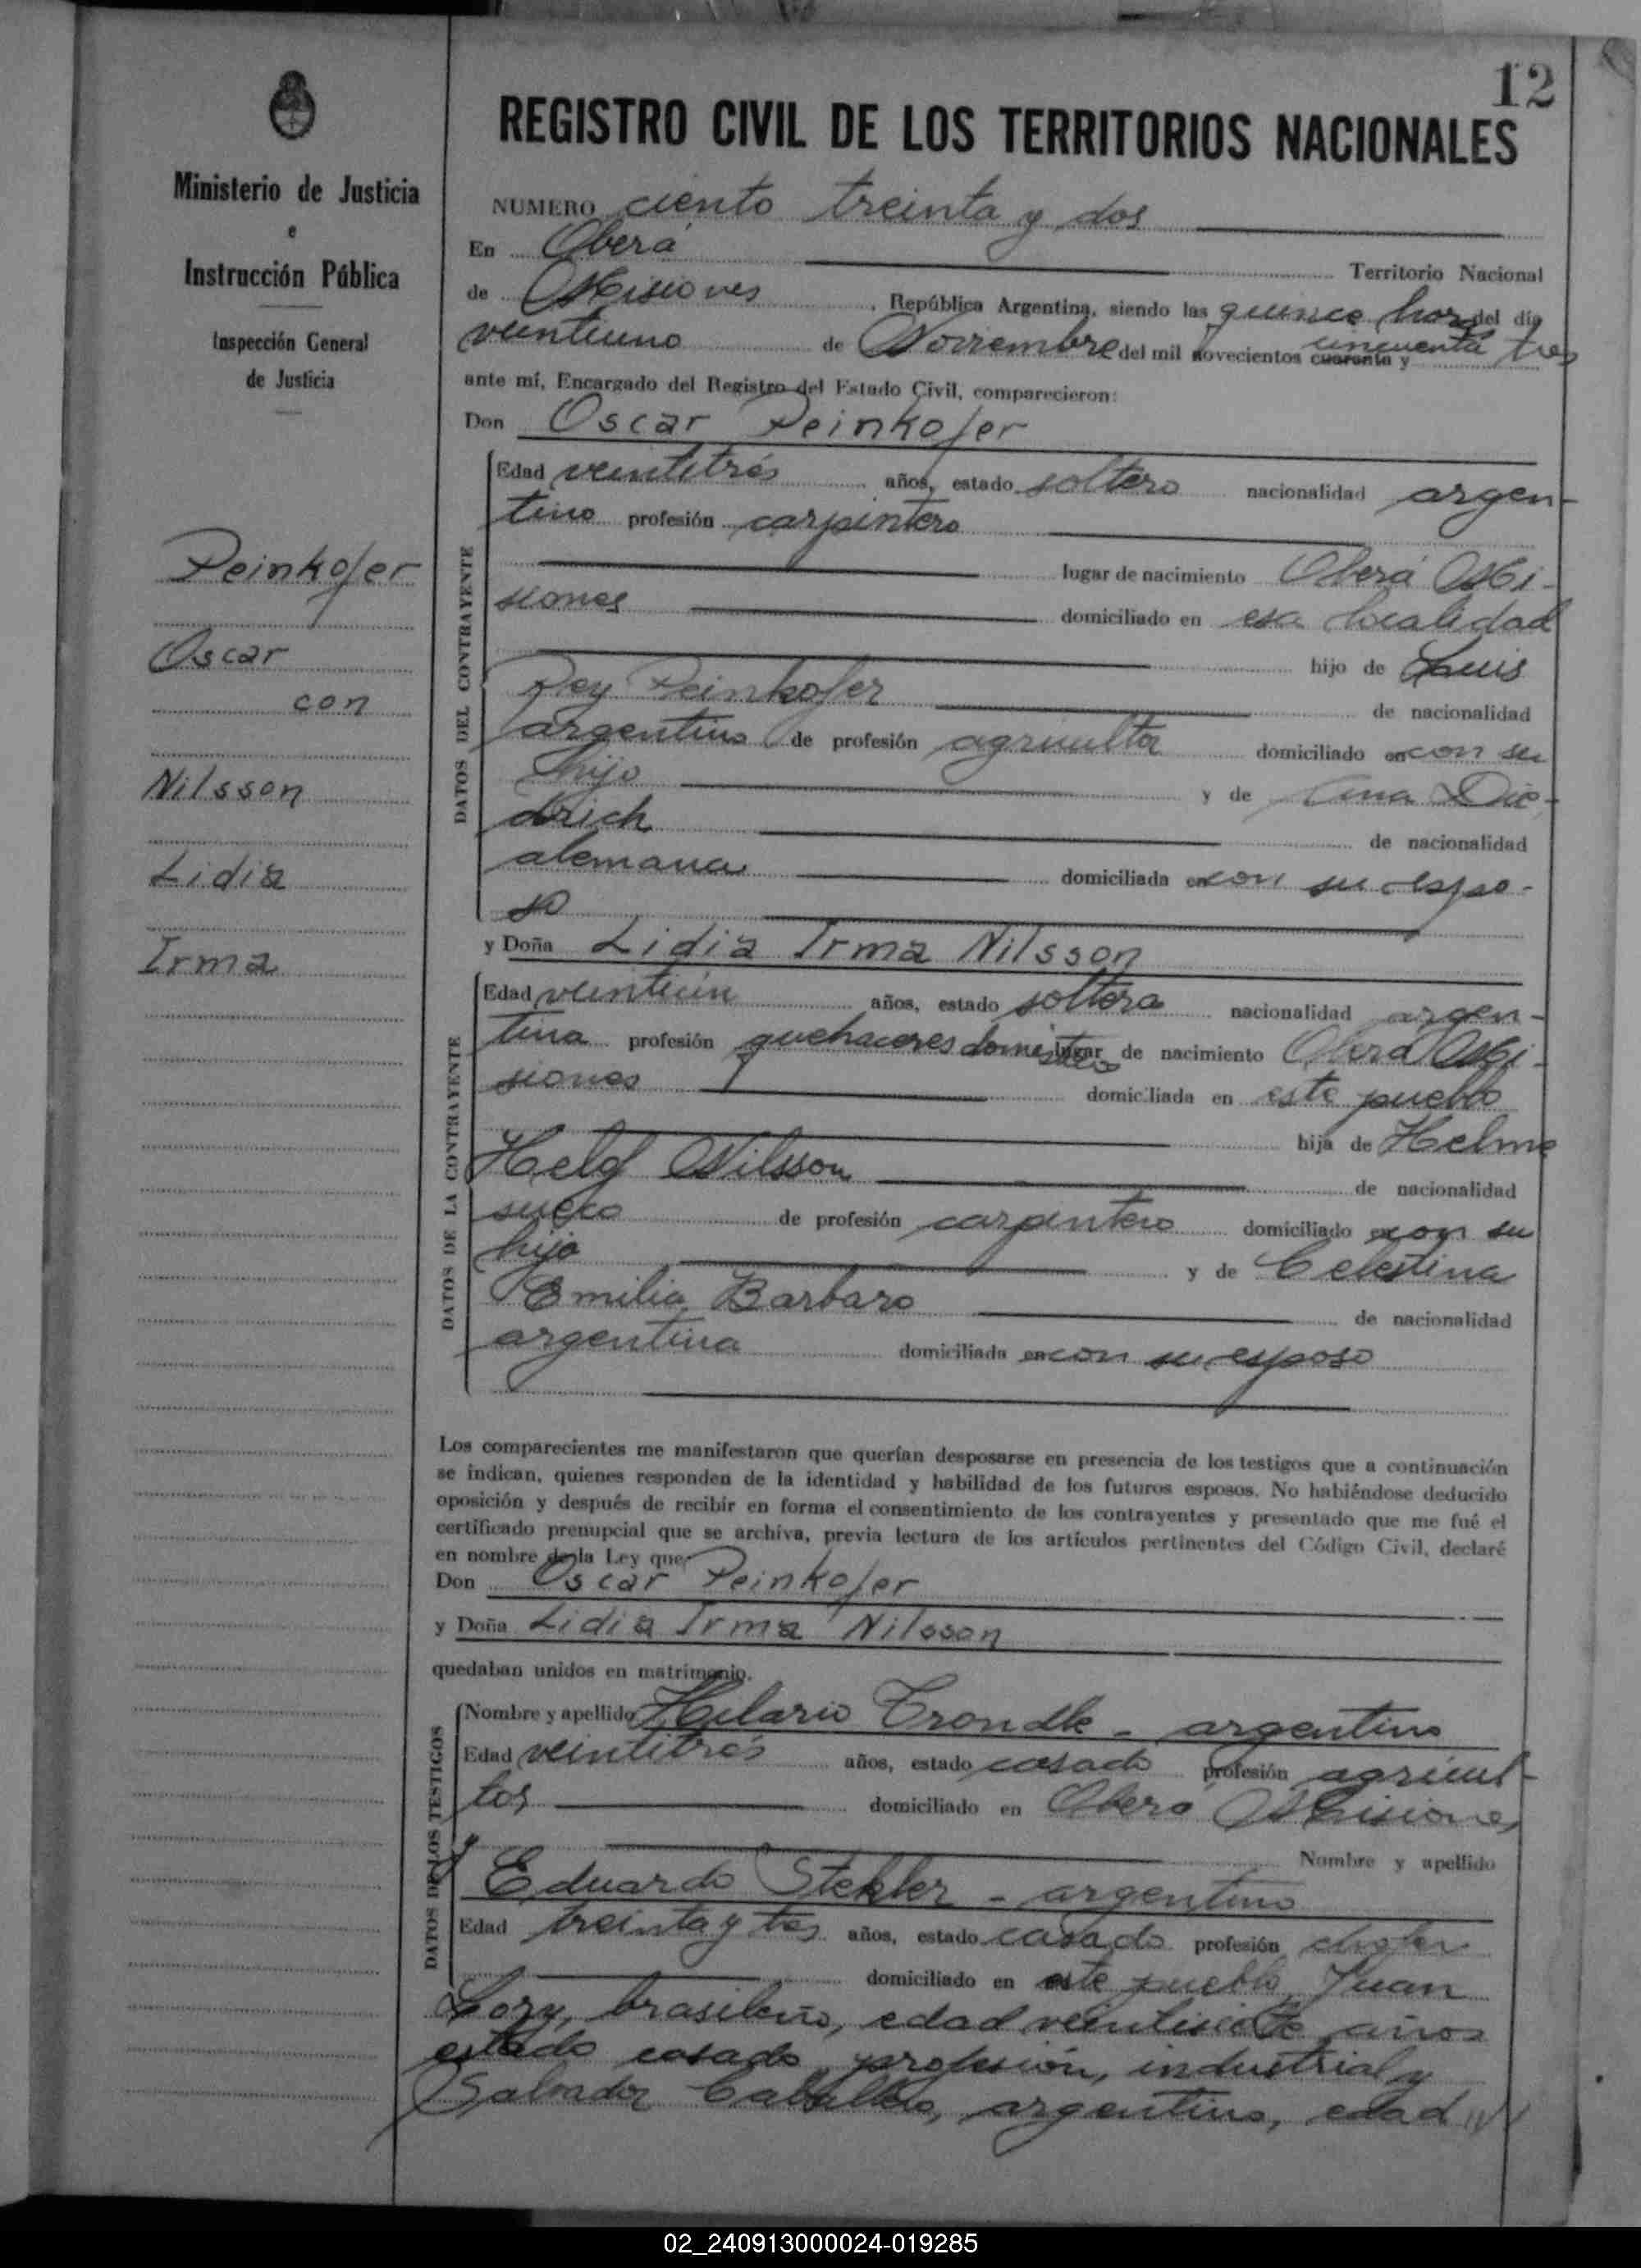 12
REGISTRO CIVIL DE LOS TERRITORIOS NACIONALES
Ministerio de Justicia
e
Instrucción Pública
Inspección General
de Justicia
Peinkofer
Oscar
con
Nilsson
Lidia
Irma
NUMERO ciento treinta y dos
En Oberá Territorio Nacional
de Misiones, República Argentina, siendo las quince horas del día
veintiuno de Noviembre del mil novecientos cuarenta cincuenta y tres
ante mí, Encargado del Registro del Estado Civil, comparecieron:
Don Oscar Peinkofer
DATOS DEL CONTRAYENTE
Edad veintitrés años, estado soltero nacionalidad argen-
tino profesión carpintero
lugar de nacimiento Oberá Mi-
siones domiciliado en esa localidad
hijo de Luis
Rey Peinkofer de nacionalidad
argentino de profesión agricultor domiciliado en con su
hijo y de Ana Die-
drich de nacionalidad
alemana domiciliada en con su espo-
so
y Doña Lidia Irma Nilsson
DATOS DE LA CONTRAYENTE
Edad veintiún años, estado soltera nacionalidad argen-
tina profesión quehaceres domésticos lugar de nacimiento Oberá Mi-
siones domiciliada en este pueblo
hija de Helme
Helg Nilsson de nacionalidad
sueco de profesión carpintero domiciliado en con su
hija y de Celestina
Emilia Barbaro de nacionalidad
argentina domiciliada en con su esposo
Los comparecientes me manifestaron que querían desposarse en presencia de los testigos que a continuación
se indican, quienes responden de la identidad y habilidad de los futuros esposos. No habiéndose deducido
oposición y después de recibir en forma el consentimiento de los contrayentes y presentado que me fué el
certificado prenupcial que se archiva, previa lectura de los artículos pertinentes del Código Civil, declaré
en nombre de la Ley que
Don Oscar Peinkofer
y Doña Lidia Irma Nilsson
quedaban unidos en matrimonio.
DATOS DE LOS TESTIGOS
Nombre y apellido Hilario Trondle - argentino
Edad veintitrés años, estado casado profesión agricul-
tor domiciliado en Oberá Misiones
y Nombre y apellido
Eduardo Stekler - argentino
Edad treinta y tres años, estado casado profesión chofer
domiciliado en este pueblo, Juan
Lory, brasileño, edad veintisiete años
estado casado, profesión, industrial y
Salvador Caballero, argentino, edad
02_240913000024-019285